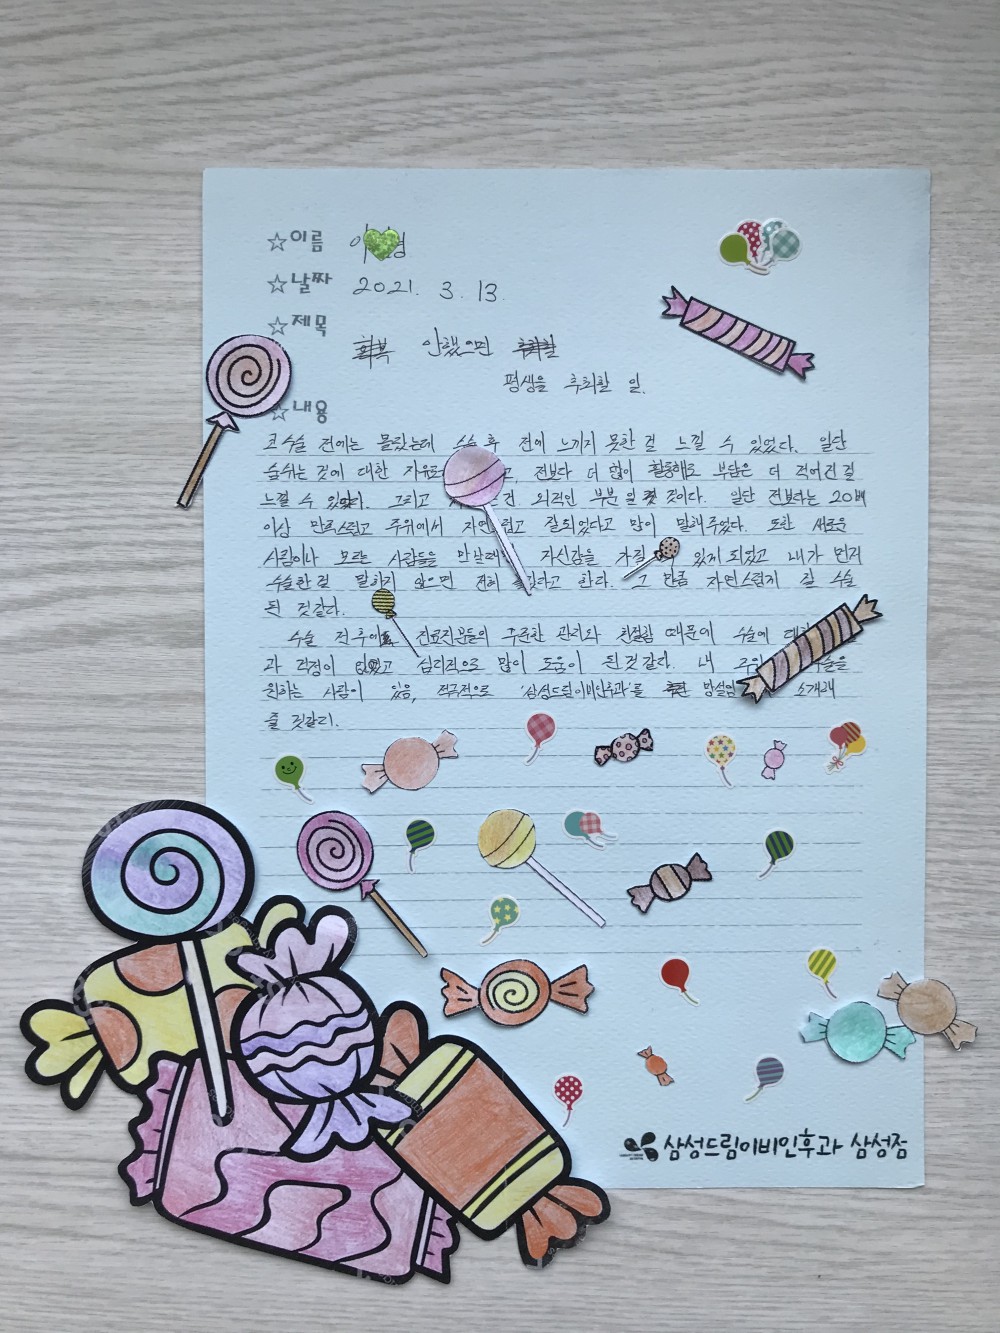 ☆이름 이 영
☆날짜 2021. 3. 13.
☆제목
안했으면
평생을 후회할 일.
☆내용
코 수술 전에는 몰랐는데 수술 후 전에 느끼지 못한 걸 느낄 수 있었다. 일단
숨쉬는 것에 대한 자유로 고, 전보다 더 많이 활동해도 부담은 더 적어진 걸
느낄 수 있었다. 그리고 건 외적인 부분일 것이다. 일단 전보다는 20배
이상 만족스럽고 주위에서 자연스럽고 잘되었다고 많이 말해주었다. 또한 새로운
사람이나 모르는 사람들을 만날때 자신감을 가질 수 있게 되었고 내가 먼저
수술한 걸 말하지 않으면 전혀 몰랐다고 한다. 그 만큼 자연스럽게 잘 수술
된 것같다.
수술 전후에 진료진분들의 꾸준한 관리와 친절함 때문에 수술에 대
과 걱정이 없었고 심리적으로 많이 도움이 된것같다. 내 주위 수술을
원하는 사람이 있음, 적극적으로 '삼성드림이비인후과'를 소개해
줄 것같다.
삼성드림이비인후과 삼성점